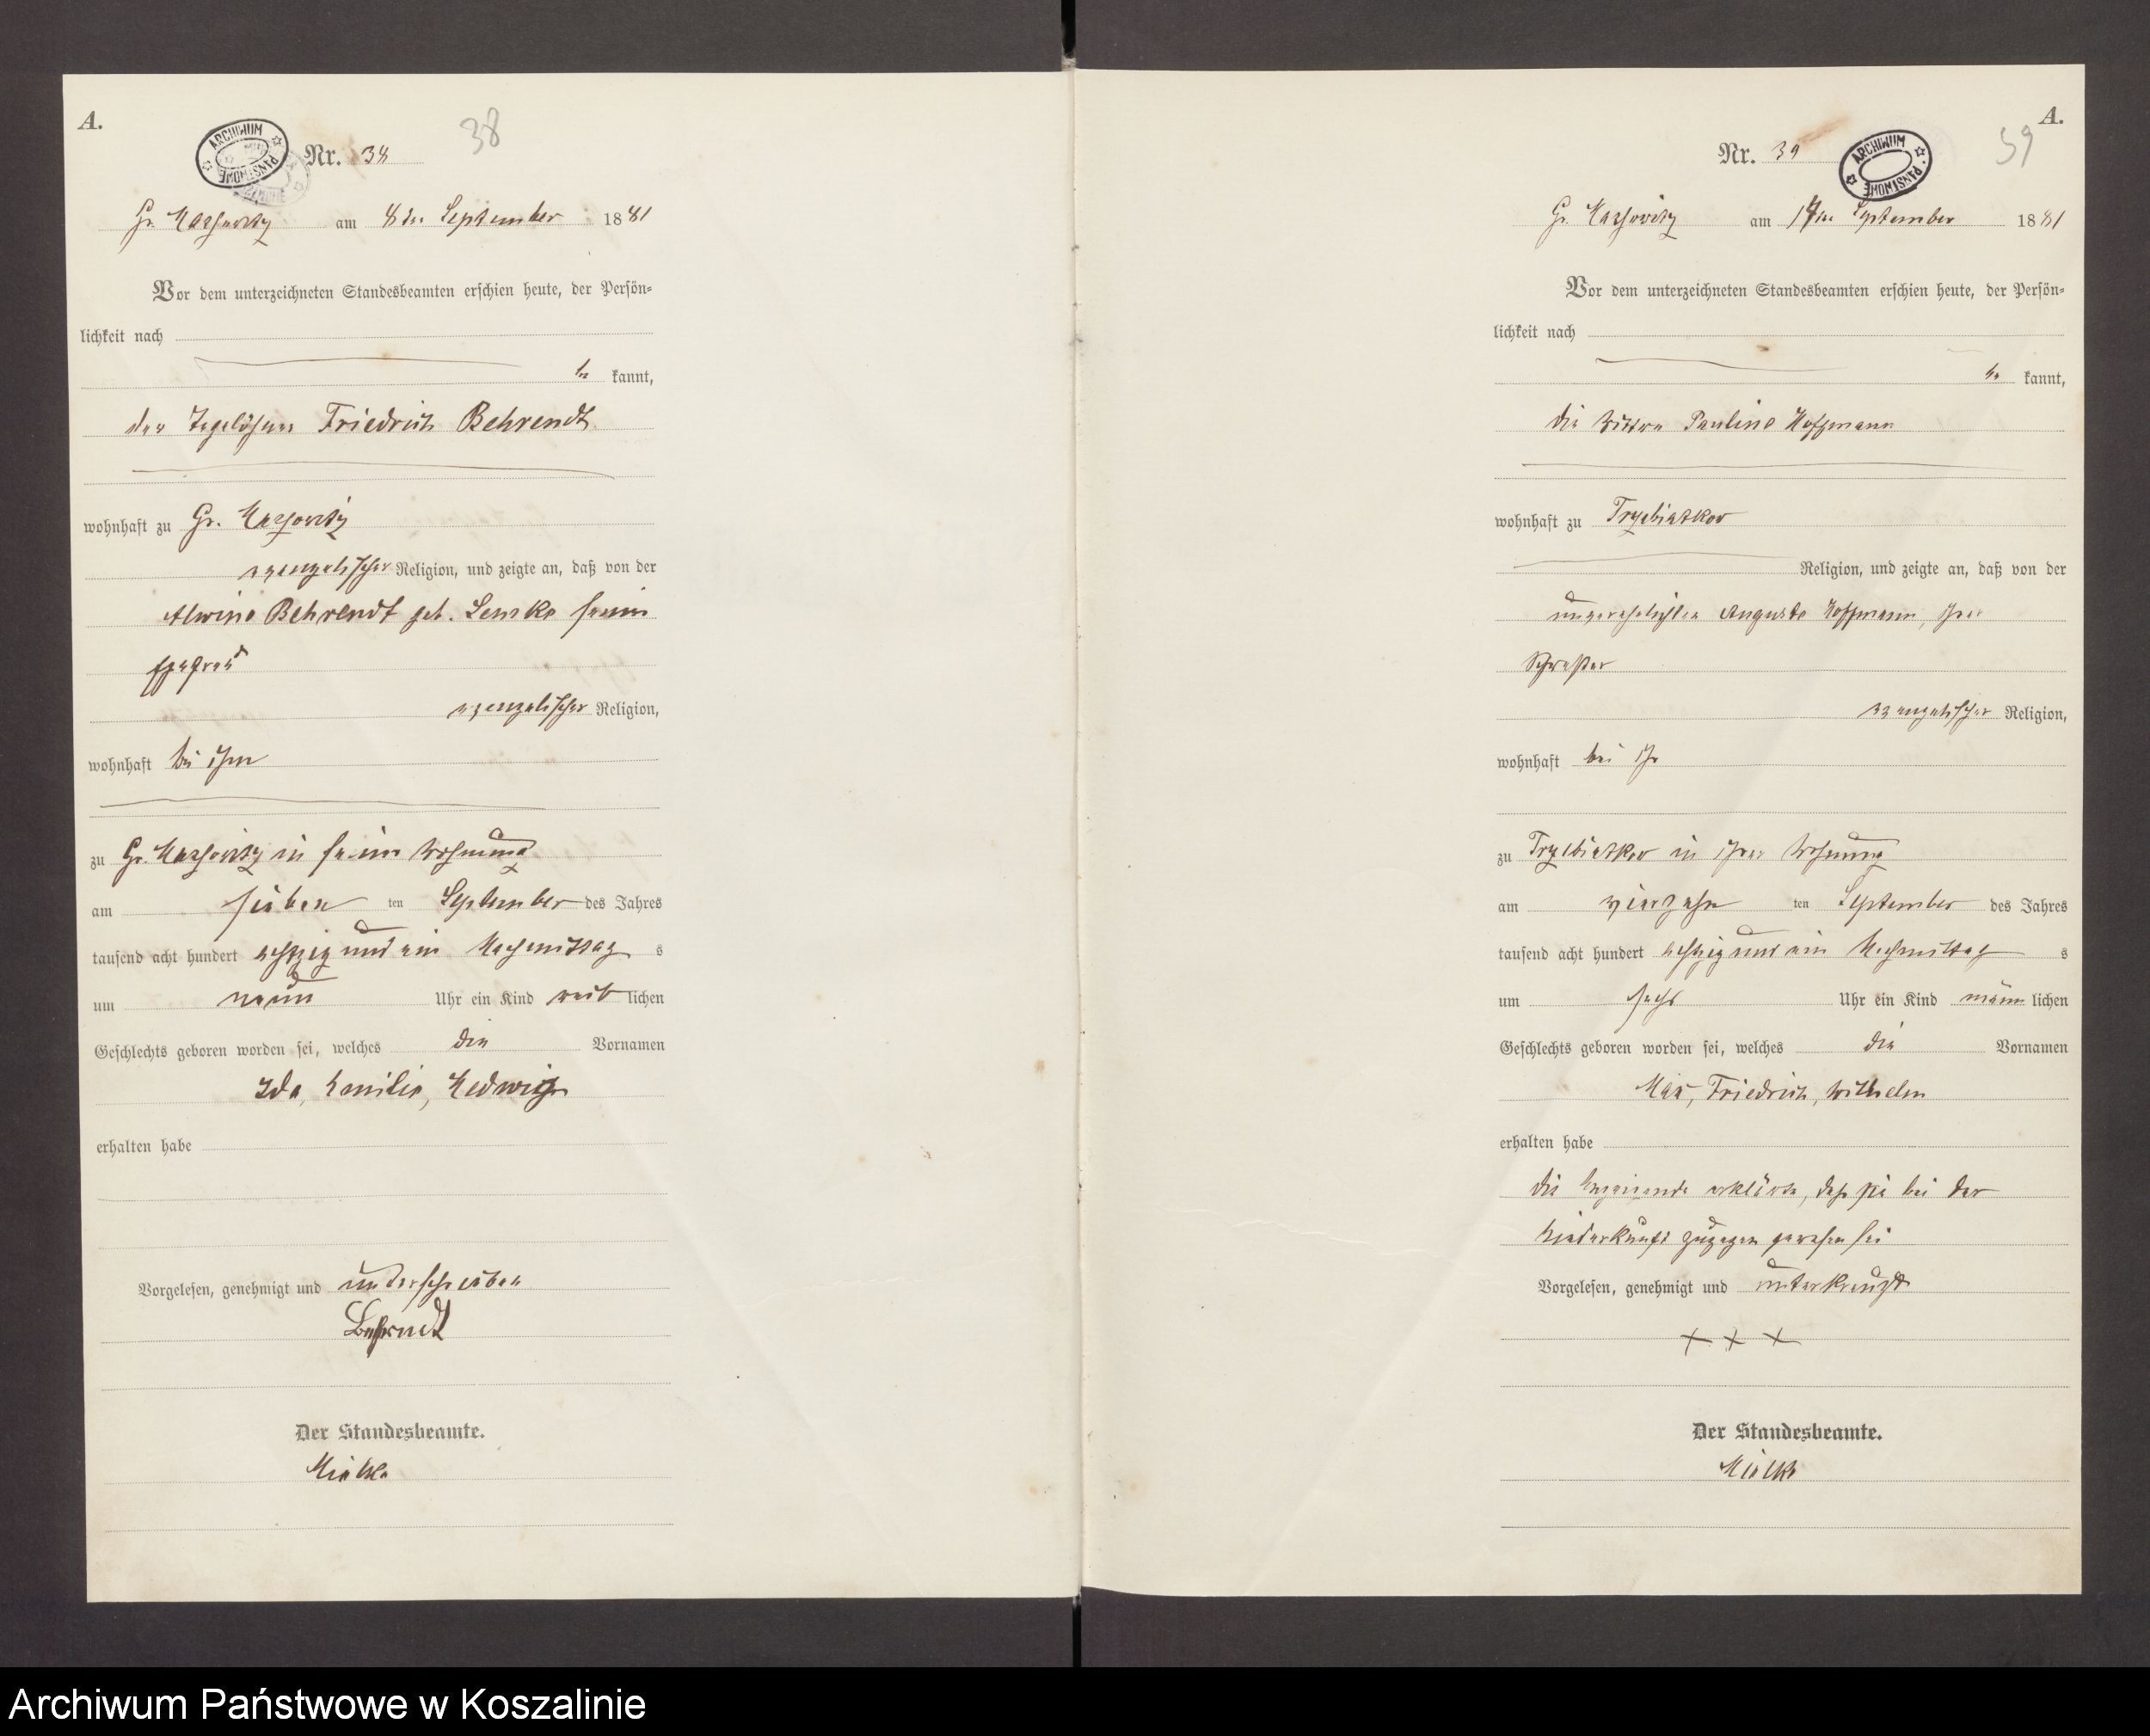 A.
38
ARCHIWUM PAŃSTWOWE
Nr. 38
Gr. Massowitz am 8ten September 1881
Vor dem unterzeichneten Standesbeamten erschien heute, der Persön-
lichkeit nach
be kannt,
der Tagelöhner Friedrich Behrendt
wohnhaft zu Gr. Massowitz
evangelischer Religion, und zeigte an, daß von der
Alwine Behrendt geb. Lemke seiner
Ehefrau
evangelischer Religion,
wohnhaft bei ihm
zu Gr. Massowitz in seiner Wohnung
am sieben ten September des Jahres
tausend acht hundert achtzig und ein Nachmittag s
um neun Uhr ein Kind weib lichen
Geschlechts geboren worden sei, welches die Vornamen
Ida, Emilie, Hedwig
erhalten habe
Vorgelesen, genehmigt und unterschrieben
Behrendt
Der Standesbeamte.
Mielke
A.
39
ARCHIWUM PAŃSTWOWE
Nr. 39
Gr. Massowitz am September 1881
Vor dem unterzeichneten Standesbeamten erschien heute, der Persön-
lichkeit nach
be kannt,
die Pauline Hoffmann
wohnhaft zu Trzebiatkow
Religion, und zeigte an, daß von der
unverehelichten Auguste Hoffmann, ihrer
Schwester
evangelischer Religion,
wohnhaft bei ihr
zu Trzebiatkow in ihrer Wohnung
am vierzehn ten September des Jahres
tausend acht hundert achtzig und ein Nachmittag s
um sechs Uhr ein Kind männ lichen
Geschlechts geboren worden sei, welches die Vornamen
Max, Friedrich, Wilhelm
erhalten habe
die Anzeigende erklärte, daß sie bei der
Niederkunft zugegen gewesen sei
Vorgelesen, genehmigt und unterkreuzt
+ + +
Der Standesbeamte.
Mielke
Archiwum Państwowe w Koszalinie